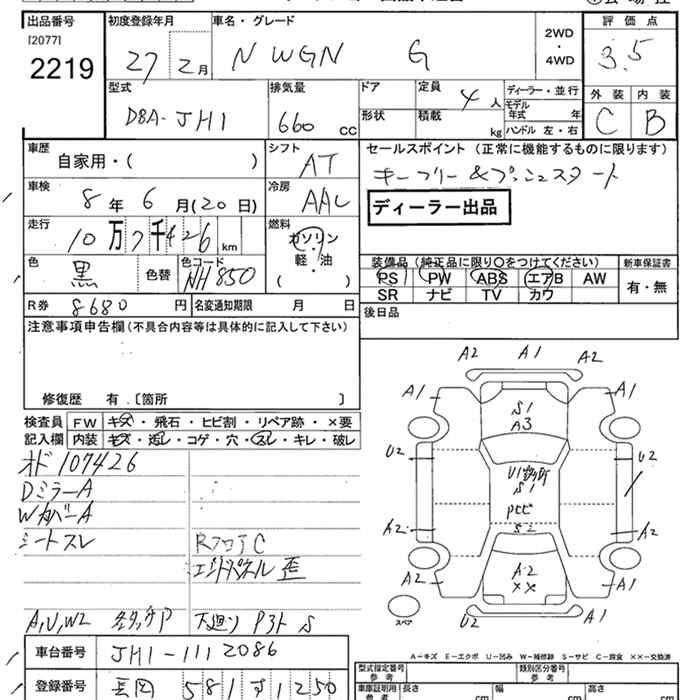 出品番号
[2077]
2219
初度登録年月
27 2月
車名・グレード
N WGN G
2WD
・
4WD
評価点
3.5
外装 内装
C B
型式
DBA-JH1
排気量
660 CC
ドア
形状
定員
4人
積載
kg
ディーラー・並行
モデル
年式 年
ハンドル 左・右
車歴
自家用・( )
シフト
AT
セールスポイント(正常に機能するものに限ります)
キーフリー&プッシュスタート
ディーラー出品
車検
8年 6月(20日)
冷房
AAC
走行
10万7千426 km
燃料
ガソリン
軽・油
( )
色
黒
色替
色コード
NH850
装備品(純正品に限り〇をつけてください)
PS PW ABS エアB AW
SR ナビ TV カワ
新車保証書
有・無
R券 8680円
名変通知期限 月 日
後日品
注意事項申告欄(不具合内容等は具体的に記入して下さい)
修復歴 有.〔箇所 〕
検査員
記入欄
FW キズ・飛石・ヒビ割・リペア跡・×要
内装 キズ・汚レ・コゲ・穴・スレ・キレ・破レ
オド 107426
DミラーA
WカバーA
シートスレ
RフロアC
エンドパネル歪
A,U,W2
下廻り P3ト S
A2 A1 A2
A1 A1
S1
A3
U2 U2
U1
S1
Pセビ
S2
A2 A2
A2
××
A2 A1
U2 A1
スペア
A-キズ E-エクボ U-凹み W-補修跡 S-サビ C-腐食 ××-交換済
車台番号 JH1-1112086
登録番号 長岡 581 す 1250
型式指定番号
参考
類別区分番号
参考
車庫証明用
参考
長さ cm
幅 cm
高さ cm